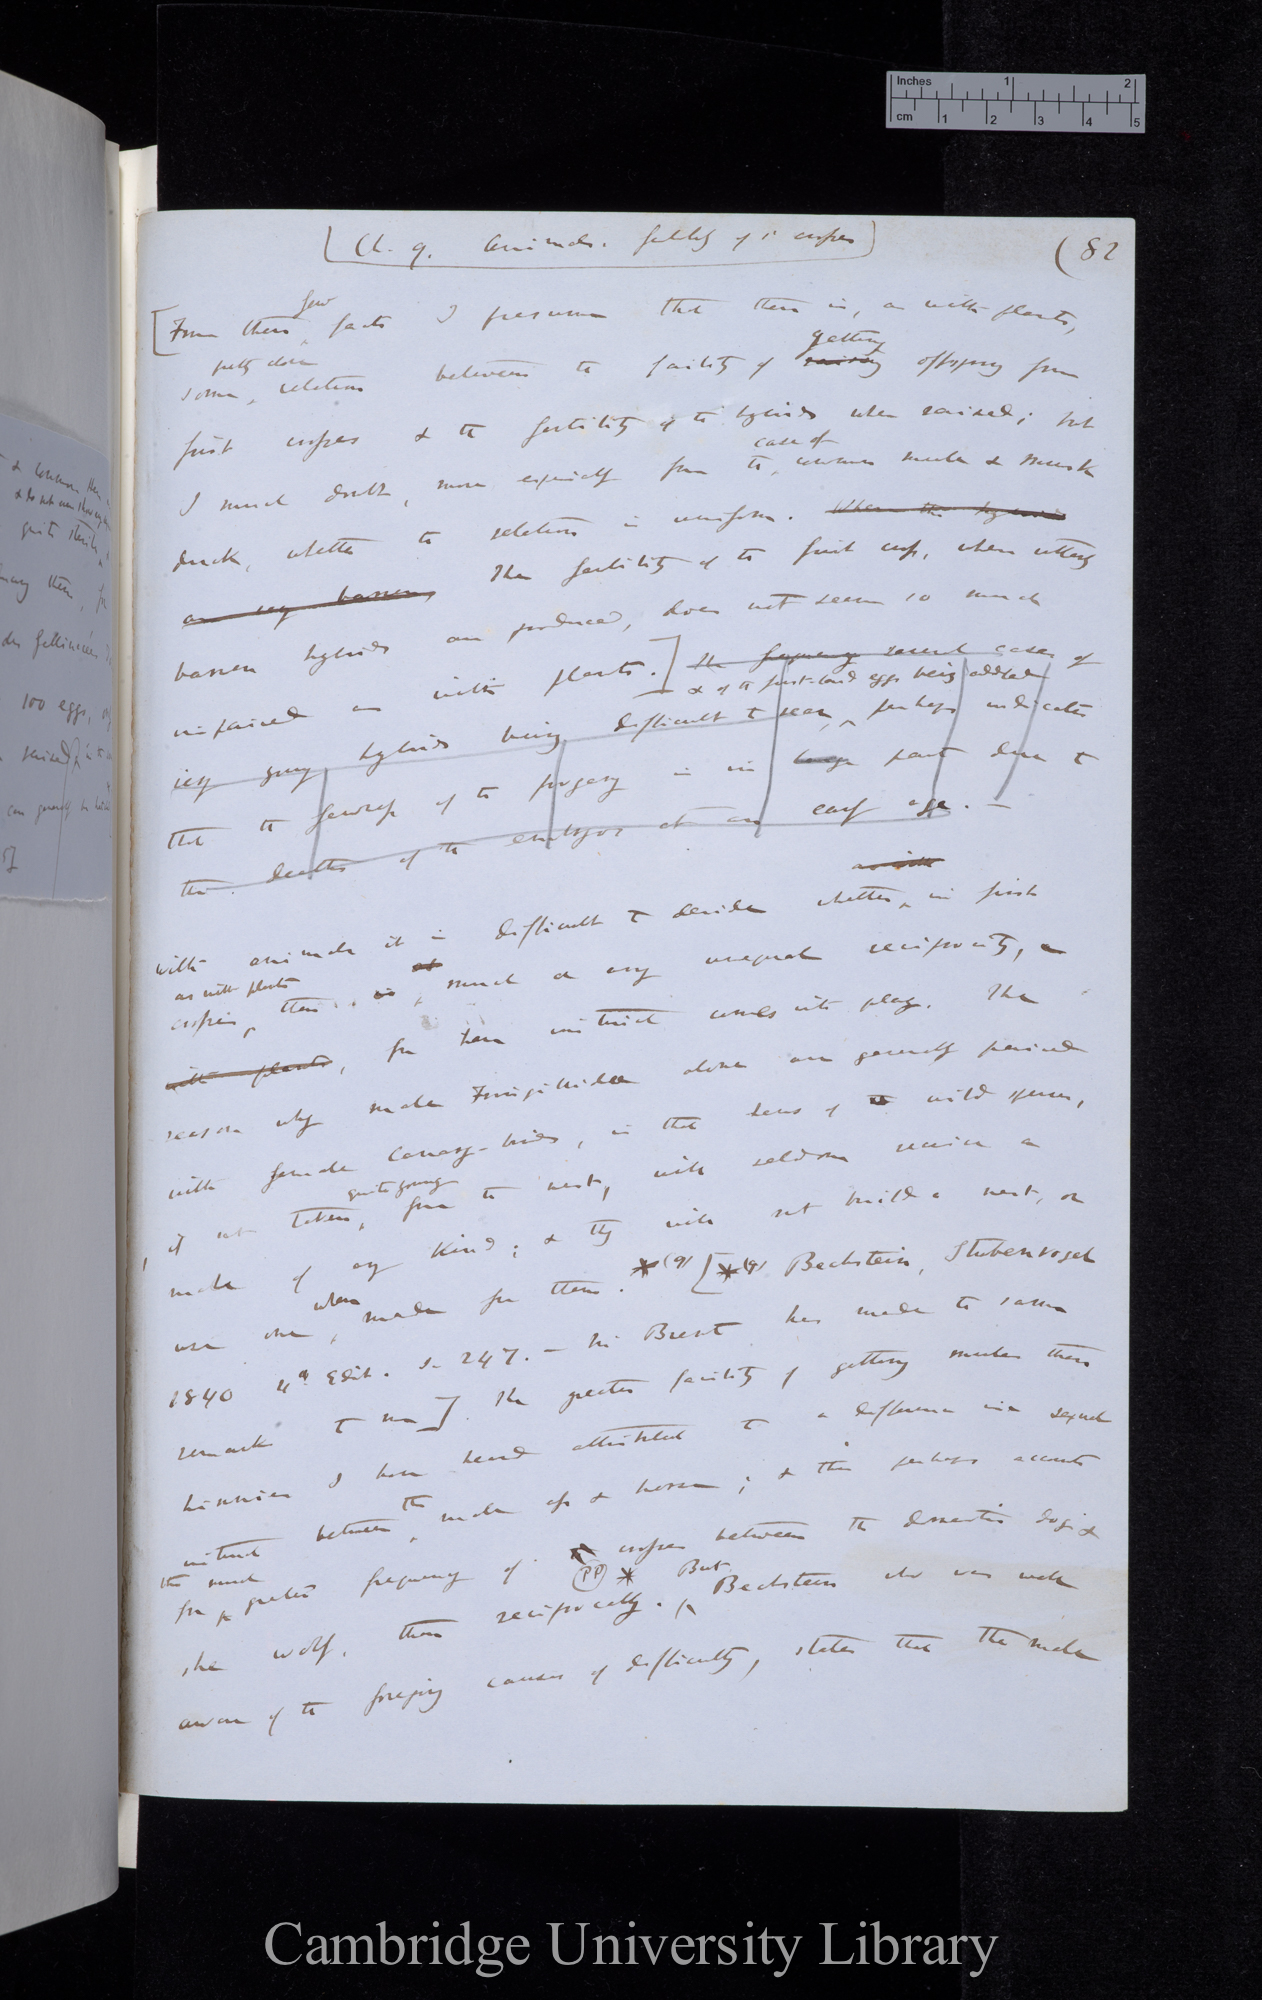 Inches 1 2
cm 1 2 3 4 5
Ch. 9. Animals. fertility of 1st crosses
(82
few
[From these facts I presume that there is, as with plants,
pretty close getting
some relation between the facility of raising offspring from
first crosses & the fertility of the hybrids when raised; but
case of
I much doubt, more especially from the common mule & musk
duck, whether the relation is uniform. When the hybrids
are very barren, The fertility of the first cross, when utterly
barren hybrids are produced, does not seem so much
impaired as with plants.] The frequency several cases of
& of the first-laid eggs being addled
very young hybrids being difficult to rear, perhaps indicates
that the fewness of the progeny is in large part due to
the deaths of the embryos at an early age. —
With animals it is difficult to decide whether, in first
as with plants
crosses, there is much or any unequal reciprocity, as
with plants, for here instinct comes into play. The
reason why male Fringillidae alone are generally paired
with female Canary-birds, is that hens of the wild species,
quite young
if not taken, from the nest, will seldom receive a
male of any kind; & they will not build a nest, or
when
use one, made for them. *(9) [*(9) Bechstein, Stubenvögel
1840 4th Edit. s. 247. — Mr Brent has made the same
remark to me]. The greater facility of getting mules than
hinnies I have heard attributed to a difference in sexual
the
instinct between male ass & horse; & this perhaps accounts
the much
for greater frequency of crosses between the domestic dog &
* But
she wolf, than reciprocally. Bechstein who was well
aware of the foregoing causes of difficulty, states that the male
100 eggs,
Cambridge University Library